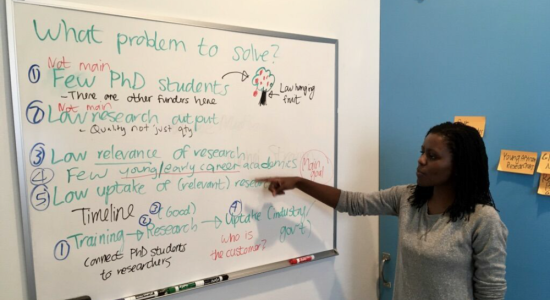 What problem to solve?
Not main
① Few PhD students
- There are other funders here
Low hanging
fruit
Not main
② Low research output
- Quality not just qty
③ Low relevance of research
④ Few young/early career academics
Main
⑤ Low uptake of (relevant) research
Timeline
② ③ (Good) ④
① Training → Research → Uptake (industry/
gov't)
connect PhD students
to researchers
who is
the customer?
Young African
Researchers